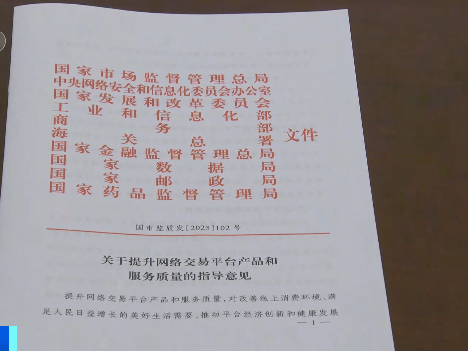 国家市场监督管理总局
中央网络安全和信息化委员会办公室
国家发展和改革委员会
工业和信息化部
商务部
海关总署 文件
国家金融监督管理总局
国家数据局
国家邮政局
国家药品监督管理局
国市监质发〔2025〕102号
关于提升网络交易平台产品和
服务质量的指导意见
提升网络交易平台产品和服务质量，对改善线上消费环境、满
足人民日益增长的美好生活需要，推动平台经济创新和健康发展
— 1 —